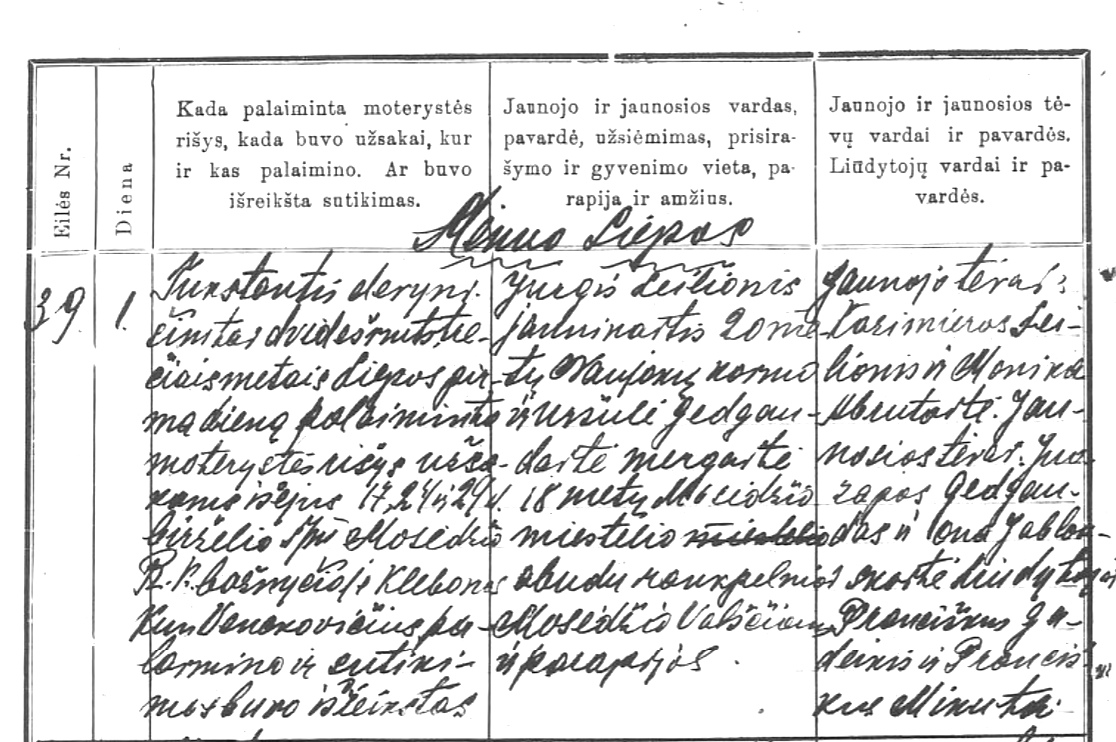 Eilės Nr.
Diena
Kada palaiminta moterystės
rišys, kada buvo užsakai, kur
ir kas palaimino. Ar buvo
išreikšta sutikimas.
Jaunojo ir jaunosios vardas,
pavardė, užsiėmimas, prisira-
šymo ir gyvenimo vieta, pa-
rapija ir amžius.
Jaunojo ir jaunosios tė-
vų vardai ir pavardės.
Liūdytojų vardai ir pa-
vardės.
Mėnuo Liepos
39
1.
Tukstantis devyni
šimtas dvidešimts tre-
čiais metais Liepos pir-
mą dieną palaiminta
moterystės rišys užsa-
kams išėjus 17, 24 ir 29 d.
birželio šįm Mosėdžio
R.K. bažnyčioje Klebonas
Kun Venckovičius pa-
laimino ir sutiki-
mas buvo išreikštas
Jurgis Leilionis
jauninaitis 20 me-
tų Naujokų kaimo
ir Uršulė Gedgau-
daitė mergaitė
18 metų Mosėdžio
miestelio miestelio
abudu rankpelniai
Mosėdžio Valsčiaus
ir parapijos
Jaunojo tėvai:
Kazimieras Lei-
lionis ir Monika
Abrutaitė. Jau-
nosios tėvai: Juo-
zapas Gedgau-
das ir Ona Jablon-
skaitė Liudytojai
Pranciškus Ga-
deikis ir Prancis-
kus Mikuta.